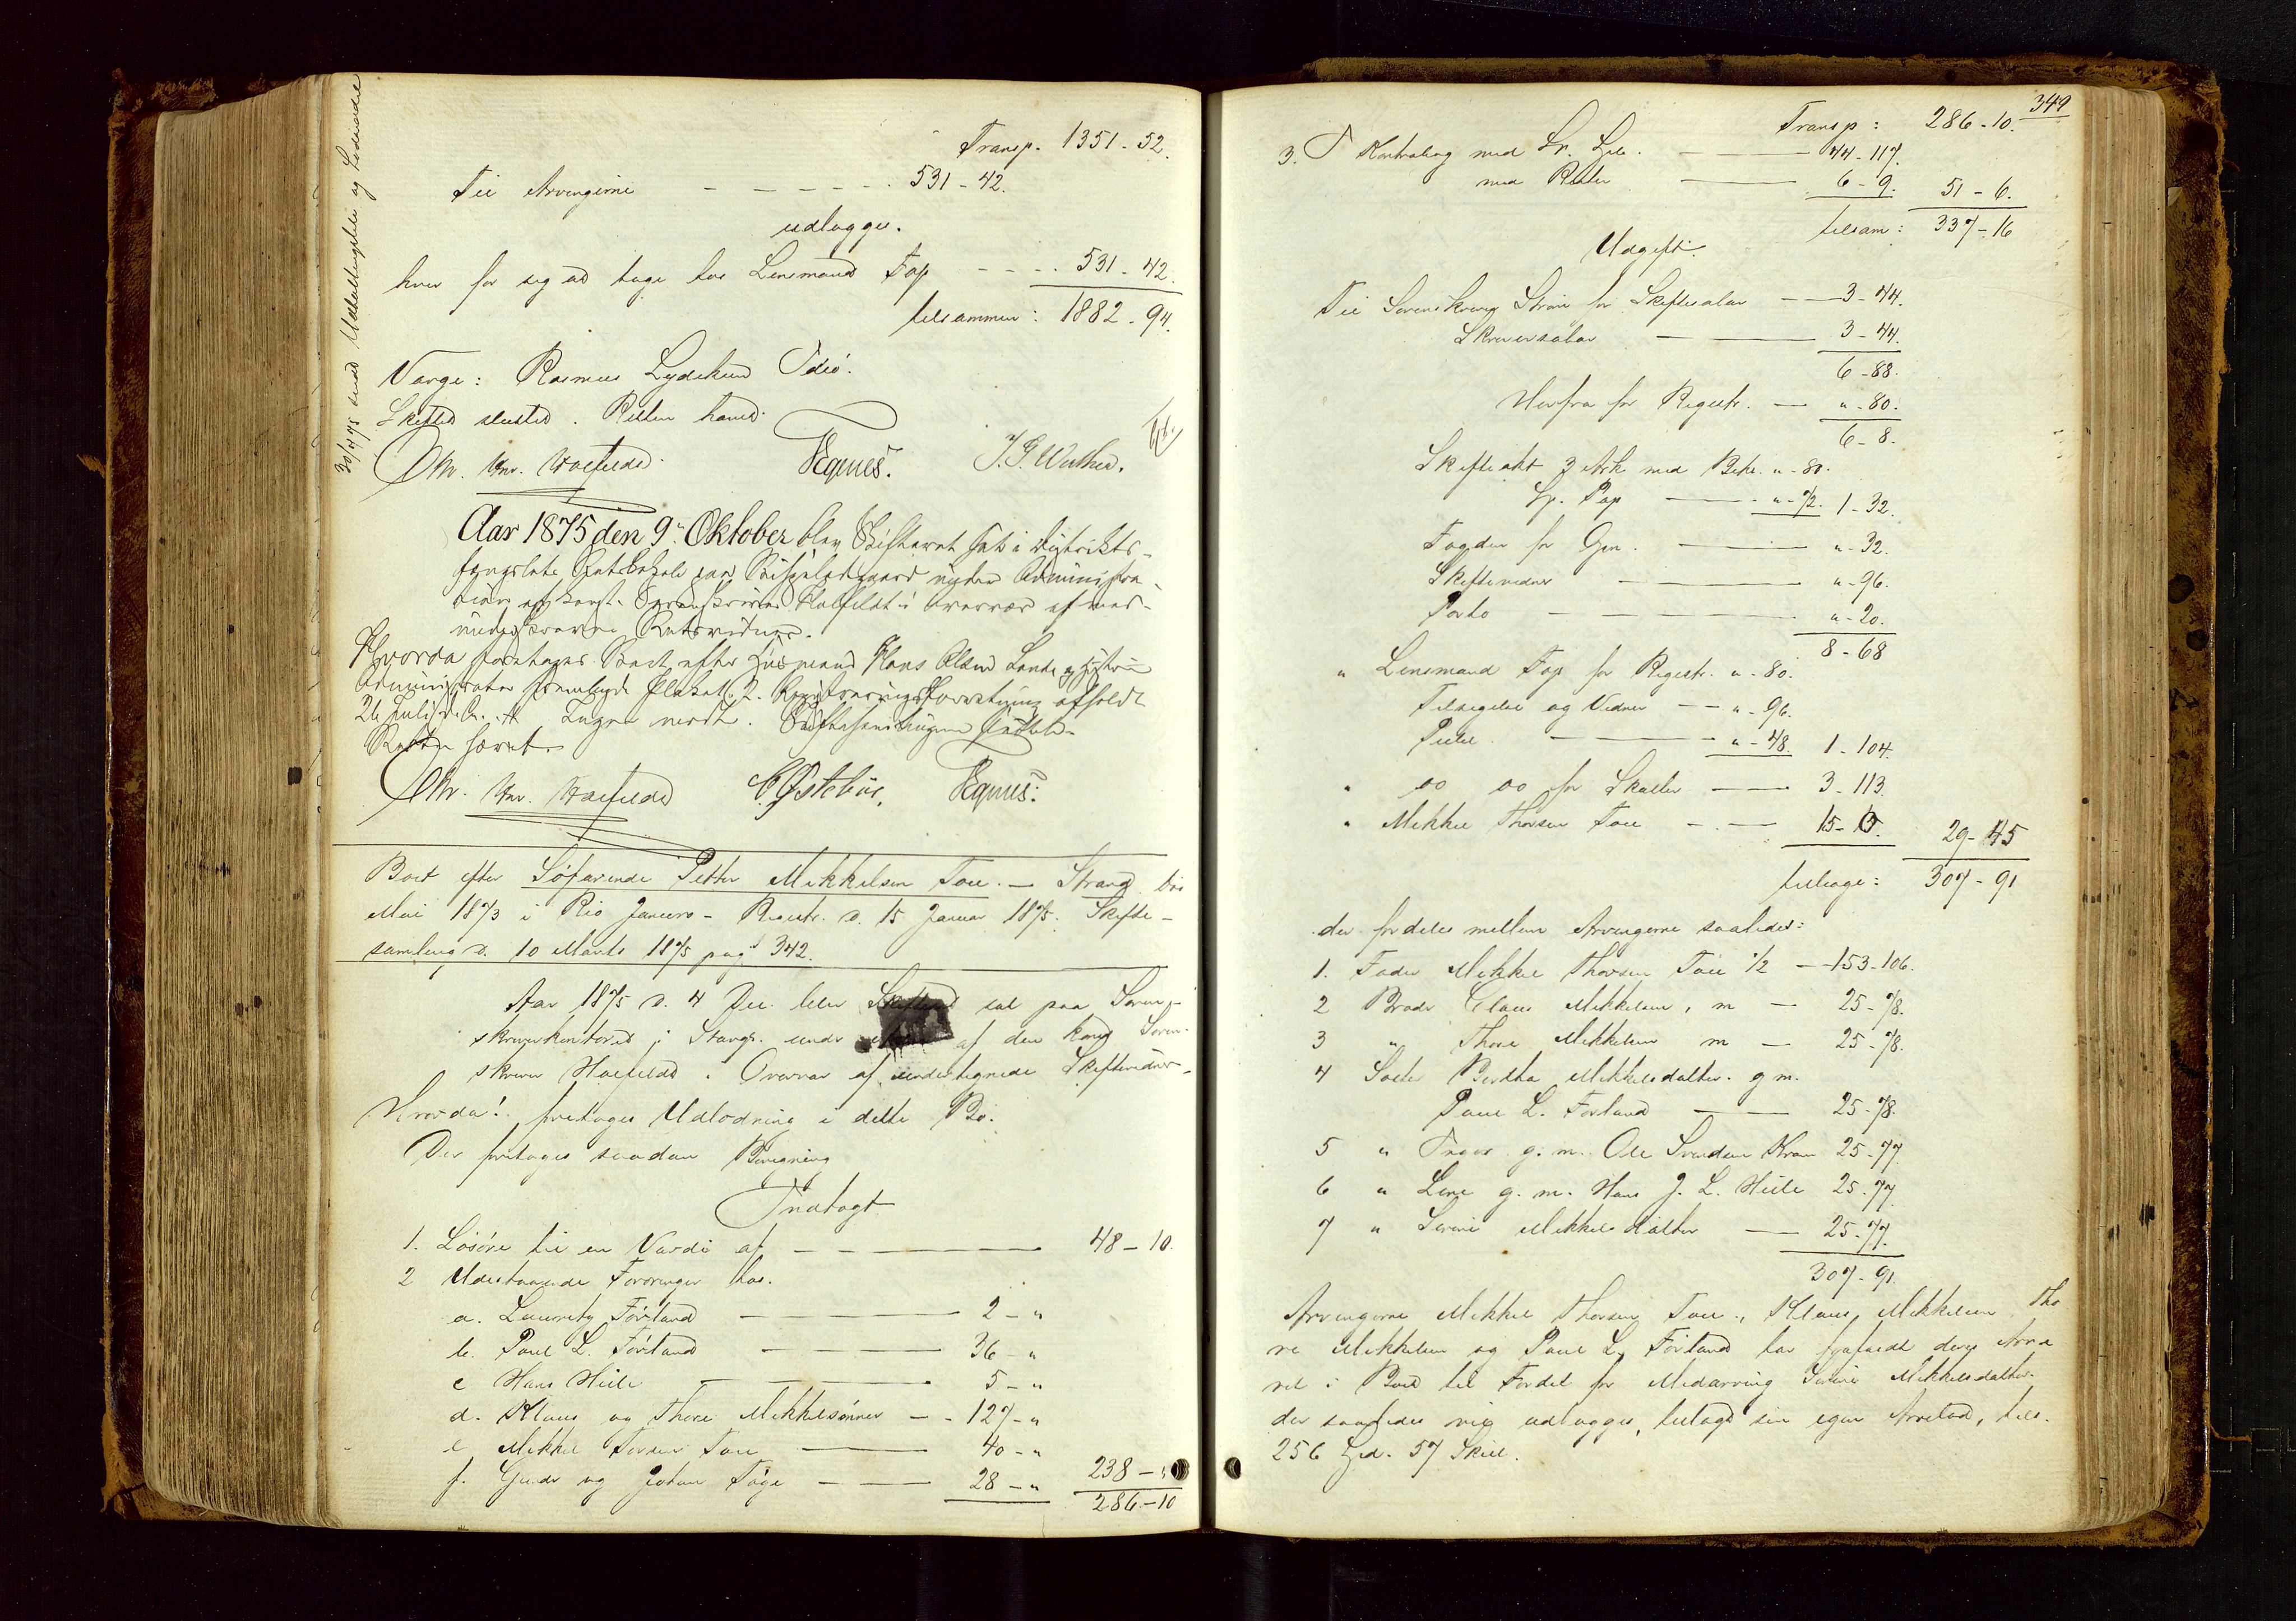 30/4 75 Udstillingsliste og
Transp. 1351-52.
Til Arvingerne - - - - - . 531-42.
udlægges.
hver for sig at tage hos Lensmand Fop - - - . 531-42.
tilsammen: 1882-94.
Værge: Rasmus Lydeksen Idsö.
Skiftet sluttet. Retten hævet.
Chr. Hnr. Holfeldt. Egnes. T. G. Wathne.
Aar 1875 den 9de Oktober blev Skifteret sat i Distrikts-
fængslets Retslokale paa under Administra-
tion af konst. Sorenskriver Holfeldt i Overvær af med-
underskrevne Retsvidner.
Hvorda foretages Boet efter Husmand Hans Olsen Lande og Hustru
Administrator fremlagde Plakat. 2. Registreringsforretning afholdt
26 Juli d. A. Ingen mødt. Skiftesamlingen sluttet.
Retten hævet.
Chr. Hnr. Holfeldt C. Østebøe. Egnes:
Boet efter Söfarende Petter Mikkelsen Tou. - Strand död
Mai 1873 i Rio Janeiro - Registr. d. 15 Januar 1875. Skifte-
samling d. 10 Marts 1875 pag 342.
Aar 1875 d. 4 Dec. blev Skifteret sat paa Soren-
skriverkontoret i Stavgr. under af den konst Soren-
skriver Holfeldt i Overvær af undertegnede Skiftevidner.
Hvorda! foretages Udlodning i dette Bo.
Der foretages saadan Beregning
Indtægt
1. Lösöre til en Værdi af - - - - 48-10.
2 Udestaaende Fordringer hos.
a. Lauritz Förland - - 2-"
b. Poul L. Förland - - 36-"
c Hans Heile - - 5-"
d. Klaus og Thore Mikkelsönner - - 127-"
e Mikkel Torsen Tou - 40-"
f. og Johan Föge - - 28-" 238-"
286-10
349
Transp: 286-10.
3. I Kontrabog med Sp. - 44-117.
med Renter - 6-9. 51-6.
tilsam: 337-16
Udgift.
Til Sorenskriver for Skiftesalær - 3-44.
Skriversalær - 3-44.
6-88.
Herfra for Registr. - "-80.
6-8.
Skifteakt 3 Ark med Bekr. "-80.
Sp. Pap - "-72. 1-32.
Fogden for Gen. - "-32.
Skiftevidner - "-96.
Porto - "-20.
8-68
" Lensmand Fop for Registr. "-80.
Tilsigelse og Vidner - - "-96.
"-48. 1-104.
" do do for Skatter - 3-113.
" Mikkel Thorsen Tou - - 15-15. 29-45
tilbage: 307-91
der fordeles mellem Arvingerne saaledes:
1. Fader Mikkel Thorsen Tou 1/2 - 153-106.
2 Broder Claus Mikkelsen, m - 25-78.
3 " Thore Mikkelsen m - 25-78.
4 Söster Bertha Mikkelsdatter. g m.
Poul L. Forland - 25-78.
5 " Inger g. m. Ole Svendsen 25-77
6 " Lene g. m. Hans J. L. Heile 25-77
7 " Serine Mikkelsdatter - 25-77.
307-91.
Arvingerne Mikkel Thorsen Tou, Klaus Mikkelsen Tho
re Mikkelsen og Poul L. Förland har frafaldt deres Arve
ret i Boet til Fordel for Medarving Serine Mikkelsdatter.
der saaledes udlægges, tillagt sin egen Arvelod, tils.
256 Spd. 57 Skill.